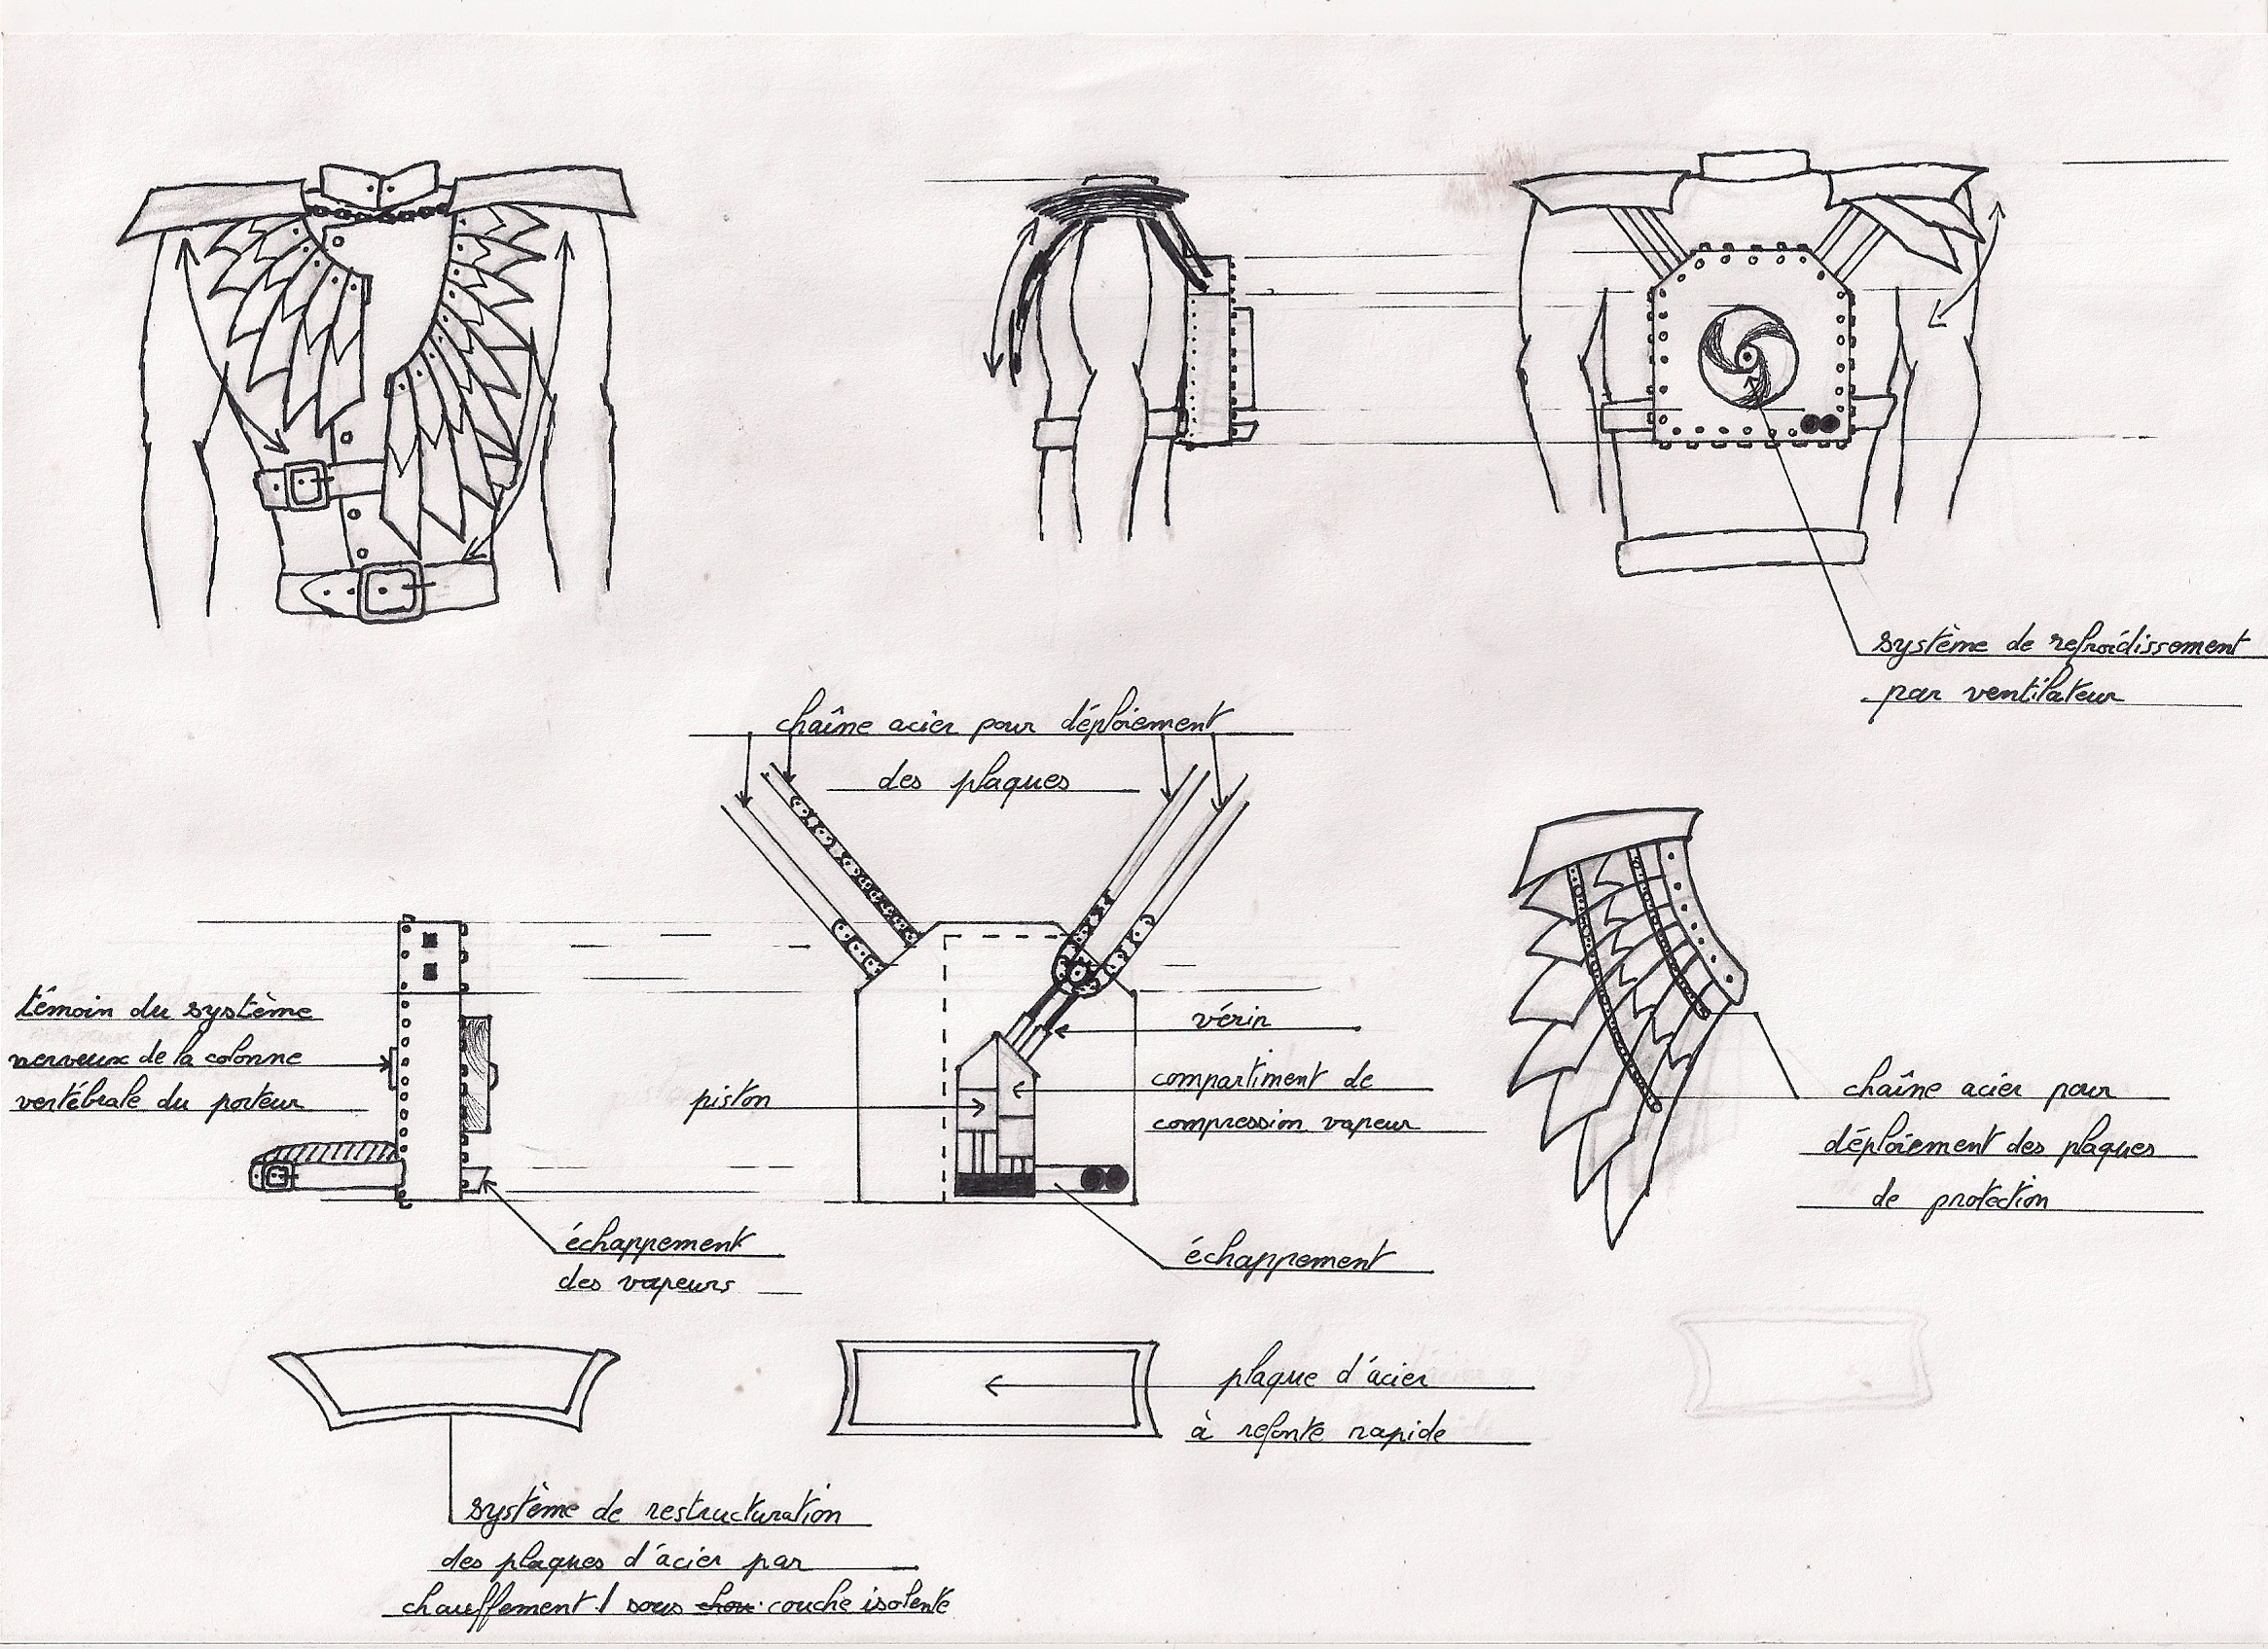 système de refroidissement
par ventilateur
chaîne acier pour déploiement
des plaques
témoin du système
nerveux de la colonne
vertébrale du porteur
piston
vérin
compartiment de
compression vapeur
échappement
des vapeurs
échappement
chaîne acier pour
déploiement des plaques
de protection
plaque d'acier
à refonte rapide
système de restructuration
des plaques d'acier par
chauffement / sous couche isolente